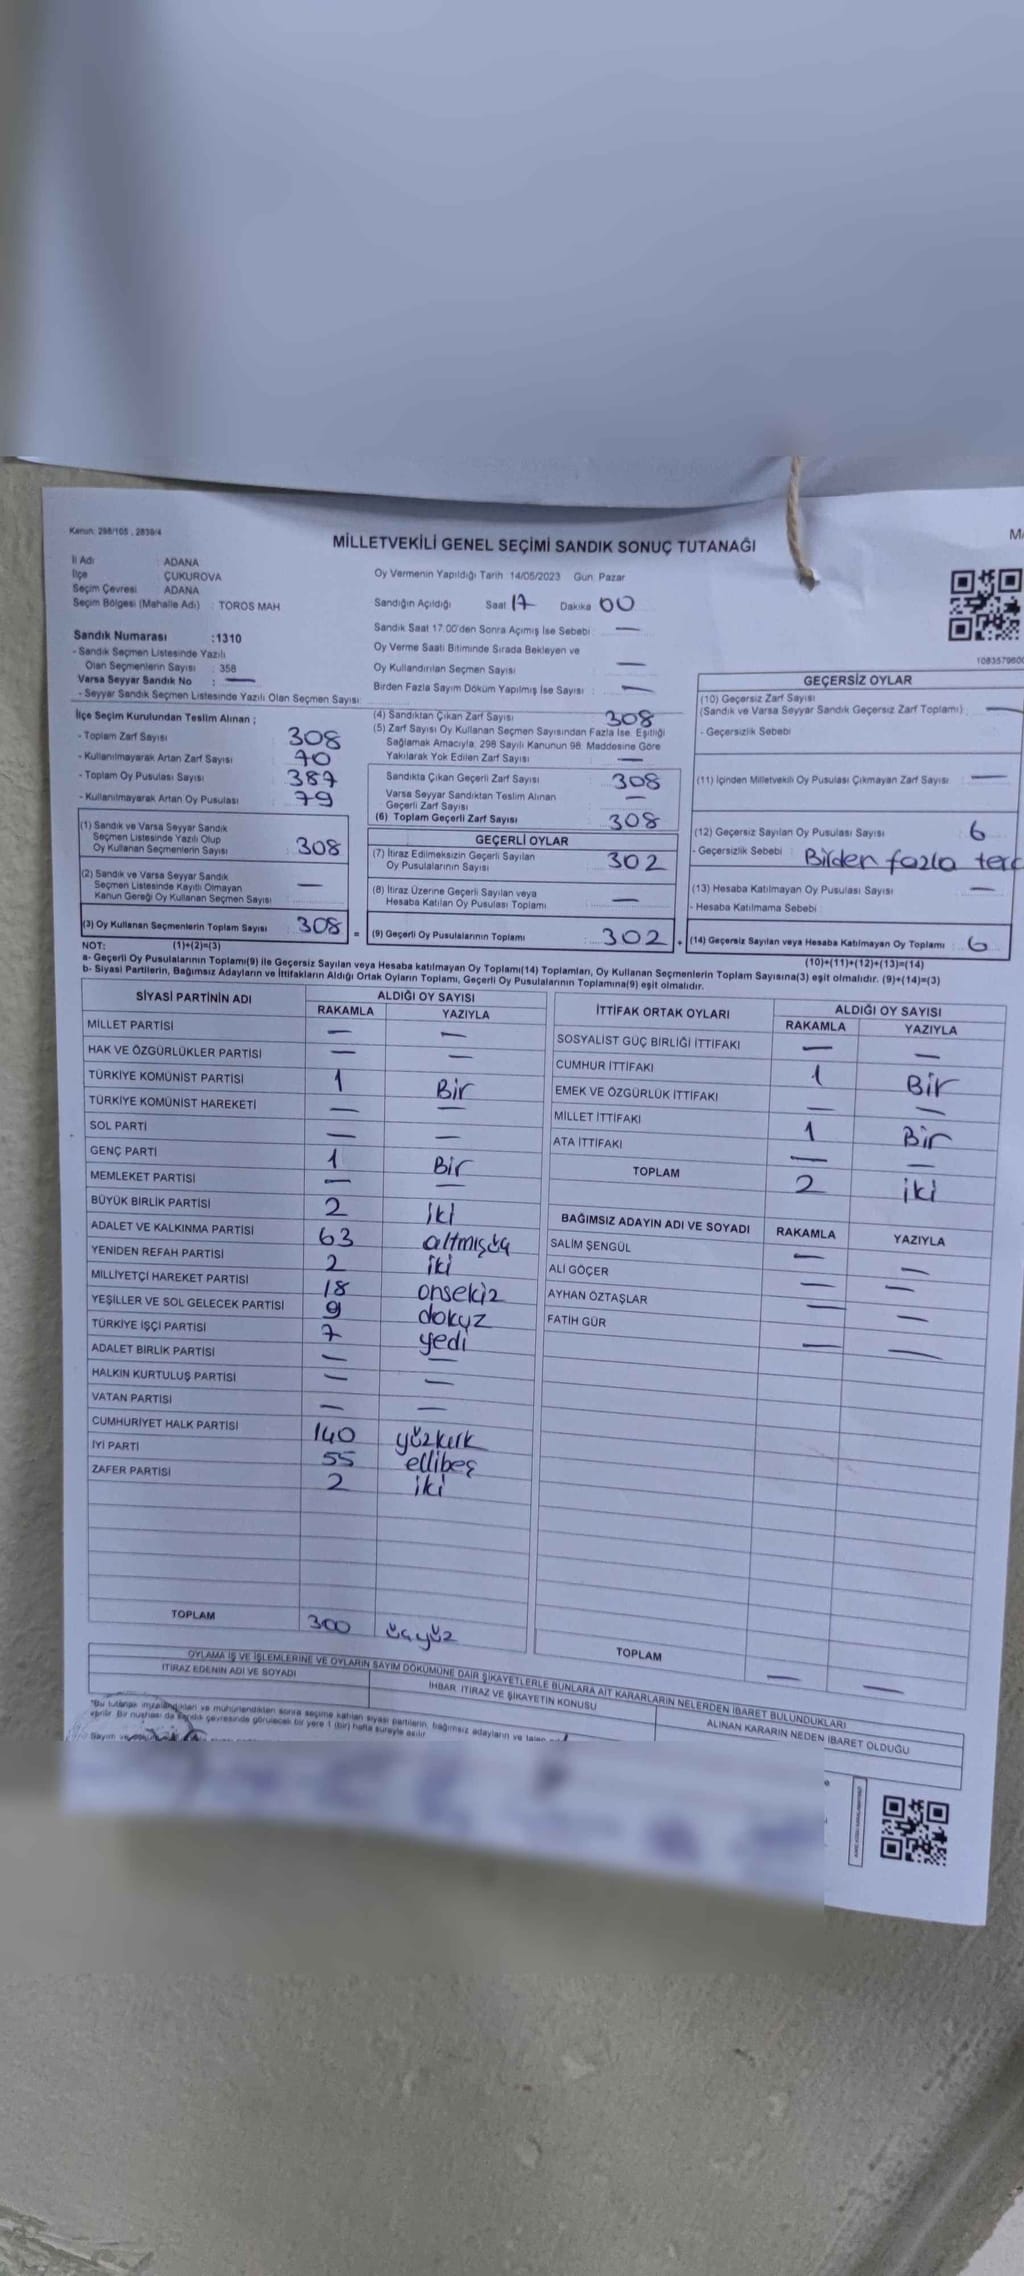 Kanun: 298/105 , 2839/4
MİLLETVEKİLİ GENEL SEÇİMİ SANDIK SONUÇ TUTANAĞI
İl Adı : ADANA
İlçe ÇUKUROVA
Seçim Çevresi ADANA
Seçim Bölgesi (Mahalle Adı) : TOROS MAH
Oy Vermenin Yapıldığı Tarih :14/05/2023 Gün: Pazar
Sandığın Açıldığı Saat 17 Dakika 00
Sandık Saat 17.00'den Sonra Açımış İse Sebebi : —
Oy Verme Saati Bitiminde Sırada Bekleyen ve
Oy Kullandırılan Seçmen Sayısı —
Birden Fazla Sayım Döküm Yapılmış İse Sayısı : —
Sandık Numarası :1310
- Sandık Seçmen Listesinde Yazılı
Olan Seçmenlerin Sayısı : 358
Varsa Seyyar Sandık No : —
- Seyyar Sandık Seçmen Listesinde Yazılı Olan Seçmen Sayısı:
İlçe Seçim Kurulundan Teslim Alınan ;
- Toplam Zarf Sayısı 308
- Kullanılmayarak Artan Zarf Sayısı 70
- Toplam Oy Pusulası Sayısı 387
- Kullanılmayarak Artan Oy Pusulası 79
(1) Sandık ve Varsa Seyyar Sandık
Seçmen Listesinde Yazılı Olup
Oy Kullanan Seçmenlerin Sayısı 308
(2) Sandık ve Varsa Seyyar Sandık
Seçmen Listesinde Kayıtlı Olmayan
Kanun Gereği Oy Kullanan Seçmen Sayısı —
(3) Oy Kullanan Seçmenlerin Toplam Sayısı 308 =
(4) Sandıktan Çıkan Zarf Sayısı 308
(5) Zarf Sayısı Oy Kullanan Seçmen Sayısından Fazla İse, Eşitliği
Sağlamak Amacıyla, 298 Sayılı Kanunun 98. Maddesine Göre
Yakılarak Yok Edilen Zarf Sayısı —
Sandıkta Çıkan Geçerli Zarf Sayısı 308
Varsa Seyyar Sandıktan Teslim Alınan
Geçerli Zarf Sayısı —
(6) Toplam Geçerli Zarf Sayısı 308
GEÇERLİ OYLAR
(7) İtiraz Edilmeksizin Geçerli Sayılan
Oy Pusulalarının Sayısı 302
(8) İtiraz Üzerine Geçerli Sayılan veya
Hesaba Katılan Oy Pusulası Toplamı —
(9) Geçerli Oy Pusulalarının Toplamı 302 +
GEÇERSİZ OYLAR
(10) Geçersiz Zarf Sayısı
(Sandık ve Varsa Seyyar Sandık Geçersiz Zarf Toplamı) —
- Geçersizlik Sebebi
(11) İçinden Milletvekili Oy Pusulası Çıkmayan Zarf Sayısı —
(12) Geçersiz Sayılan Oy Pusulası Sayısı 6
- Geçersizlik Sebebi : Birden fazla terc
(13) Hesaba Katılmayan Oy Pusulası Sayısı —
- Hesaba Katılmama Sebebi
(14) Geçersiz Sayılan veya Hesaba Katılmayan Oy Toplamı : 6
NOT: (1)+(2)=(3)
(10)+(11)+(12)+(13)=(14)
a- Geçerli Oy Pusulalarının Toplamı(9) ile Geçersiz Sayılan veya Hesaba katılmayan Oy Toplamı(14) Toplamları, Oy Kullanan Seçmenlerin Toplam Sayısına(3) eşit olmalıdır. (9)+(14)=(3)
b- Siyasi Partilerin, Bağımsız Adayların ve İttifakların Aldığı Ortak Oyların Toplamı, Geçerli Oy Pusulalarının Toplamına(9) eşit olmalıdır.
SİYASİ PARTİNİN ADI ALDIĞI OY SAYISI
RAKAMLA YAZIYLA
MİLLET PARTİSİ — —
HAK VE ÖZGÜRLÜKLER PARTİSİ — —
TÜRKİYE KOMÜNİST PARTİSİ 1 Bir
TÜRKİYE KOMÜNİST HAREKETİ — —
SOL PARTİ — —
GENÇ PARTİ 1 Bir
MEMLEKET PARTİSİ — —
BÜYÜK BİRLİK PARTİSİ 2 iki
ADALET VE KALKINMA PARTİSİ 63 altmışüç
YENİDEN REFAH PARTİSİ 2 iki
MİLLİYETÇİ HAREKET PARTİSİ 18 onsekiz
YEŞİLLER VE SOL GELECEK PARTİSİ 9 dokuz
TÜRKİYE İŞÇİ PARTİSİ 7 yedi
ADALET BİRLİK PARTİSİ — —
HALKIN KURTULUŞ PARTİSİ — —
VATAN PARTİSİ — —
CUMHURİYET HALK PARTİSİ 140 yüzkırk
İYİ PARTİ 55 ellibeş
ZAFER PARTİSİ 2 iki
TOPLAM 300 üçyüz
İTTİFAK ORTAK OYLARI ALDIĞI OY SAYISI
RAKAMLA YAZIYLA
SOSYALİST GÜÇ BİRLİĞİ İTTİFAKI — —
CUMHUR İTTİFAKI 1 Bir
EMEK VE ÖZGÜRLÜK İTTİFAKI — —
MİLLET İTTİFAKI 1 Bir
ATA İTTİFAKI — —
TOPLAM 2 iki
BAĞIMSIZ ADAYIN ADI VE SOYADI RAKAMLA YAZIYLA
SALİM ŞENGÜL — —
ALİ GÖÇER — —
AYHAN ÖZTAŞLAR — —
FATİH GÜR — —
TOPLAM — —
OYLAMA İŞ VE İŞLEMLERİNE VE OYLARIN SAYIM DÖKÜMÜNE DAİR ŞİKAYETLERLE BUNLARA AİT KARARLARIN NELERDEN İBARET BULUNDUKLARI
İTİRAZ EDENİN ADI VE SOYADI İHBAR, İTİRAZ VE ŞİKAYETİN KONUSU ALINAN KARARIN NEDEN İBARET OLDUĞU
*Bu tutanak imzalandıktan ve mühürlendikten sonra seçime katılan siyasi partilerin, bağımsız adayların ve talep
verilir. Bir nüshası da sandık çevresinde görülecek bir yere 1 (bir) hafta süreyle asılır.